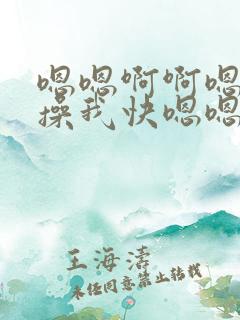 嗯嗯啊啊嗯
操我快嗯嗯
王海涛
未经同意禁止转载